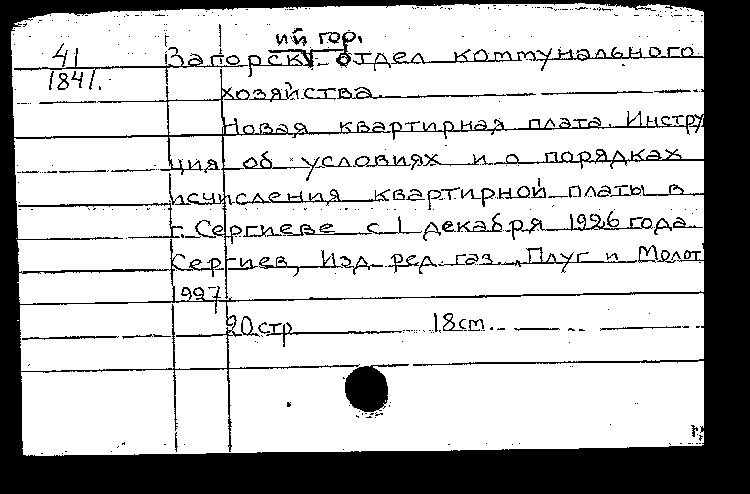 ий гор.
41 Загорск. отдел коммунального
1841. хозяйства.
Новая квартирная плата. Инстру
ция об условиях и о порядках
исчисления квартирной платы в
г. Сергиеве с 1 декабря 1926 года.
Сергиев, Изд. ред. газ. „Плуг и Молот"
1927.
20 стр. 18 см.